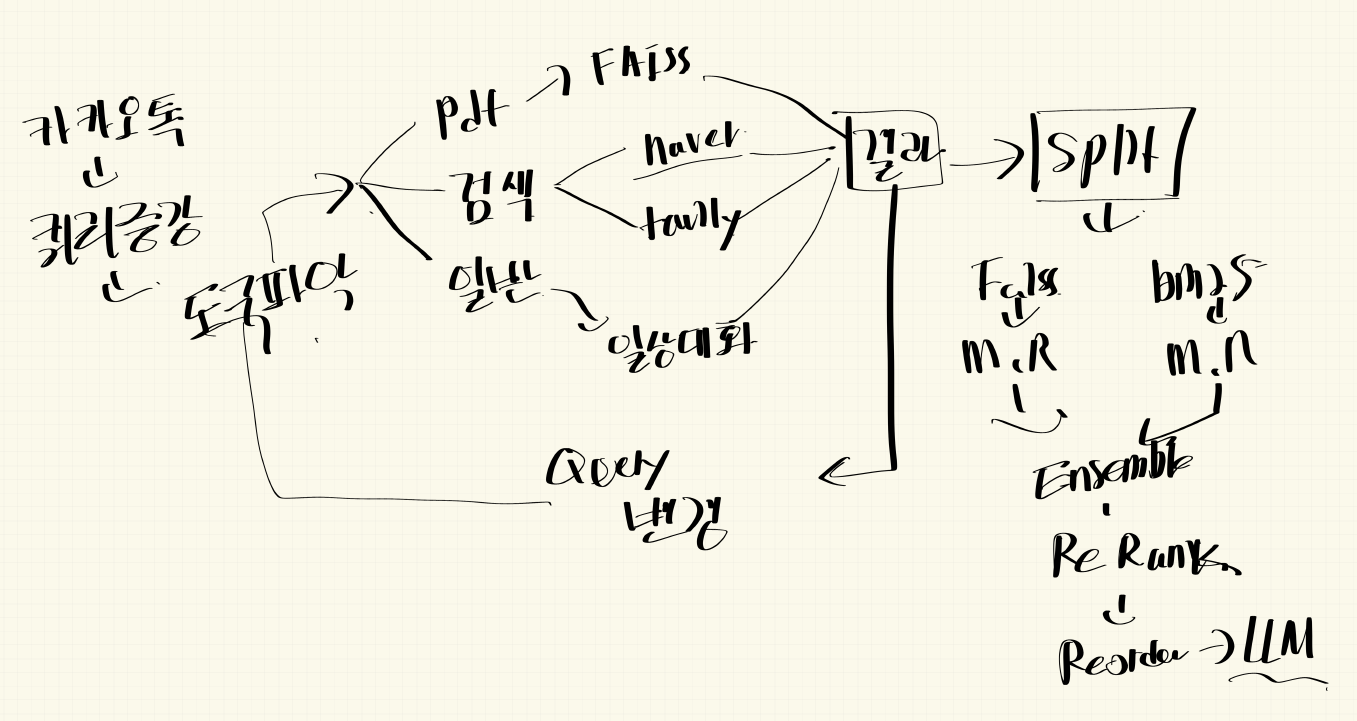 카카오톡
쿼리증강
도구파악
pdf
FAISS
검색
naver
tavily
일반
일상대화
결과
Query
변경
Split
Faiss
bm25
M.R
m.R
Ensemble
ReRank
Reorder
LLM